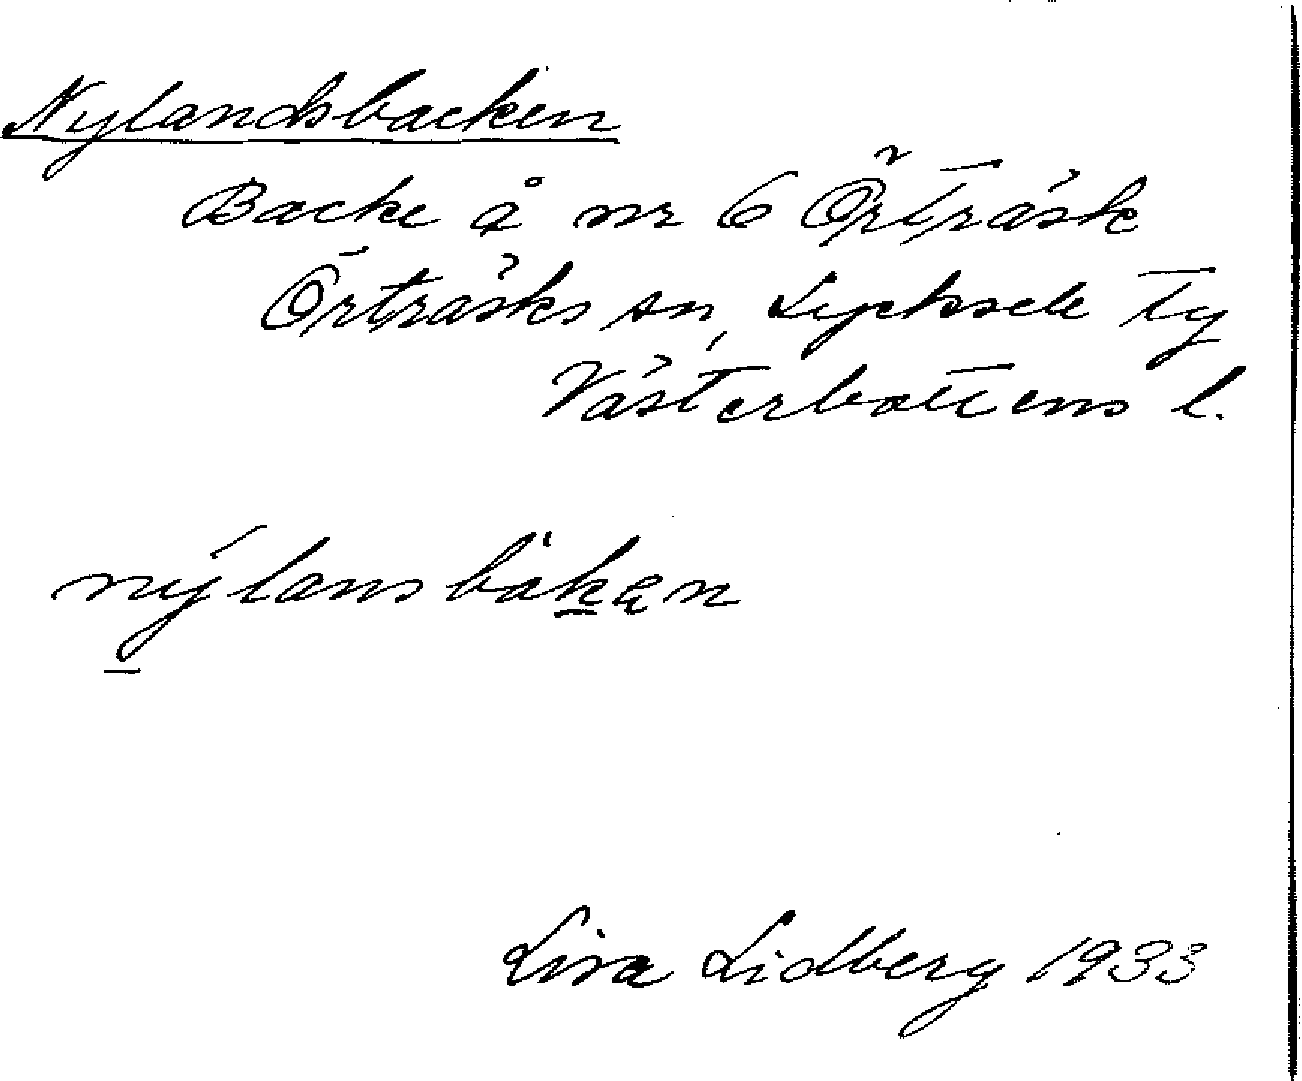 Nylandsbacken
Backe å nr 6 Örträsk
Örträsks sn, Lycksele tg
Västerbottens l.
nýlansbàkan
Lisa Lidberg 1933